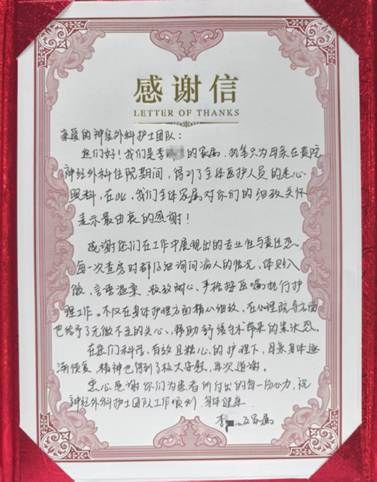 感谢信
LETTER OF THANKS
亲爱的神经外科护士团队:
您们好!我们是李的家属,为母亲在贵院
神经外科住院期间,得到了全体医护人员的悉心
照料,在此,我们全体家属对你们的细致关怀
表示最由衷的感谢!
感谢您们在工作中展现出的专业性与责任感。
每一次查房时都仔细询问病人的情况,
微,言语温柔,耐心,严格按医嘱执行护
理工作。不仅在身体护理方面精心细致,在心理疏导方面
也给予了无微不至的关心,帮助舒缓
在您们科学、有效且精心的护理下,母亲身体逐
渐恢复,精神也得到了极大好转,再次感谢。
衷心感谢你们为患者所付出的每一份心力,祝
神经外科护士团队工作顺利,身体健康
李家属